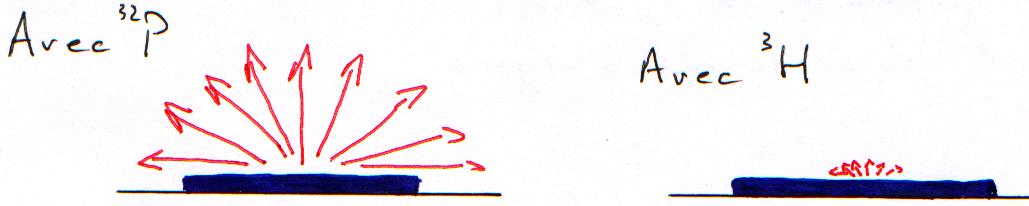 Avec ³²P
Avec ³H